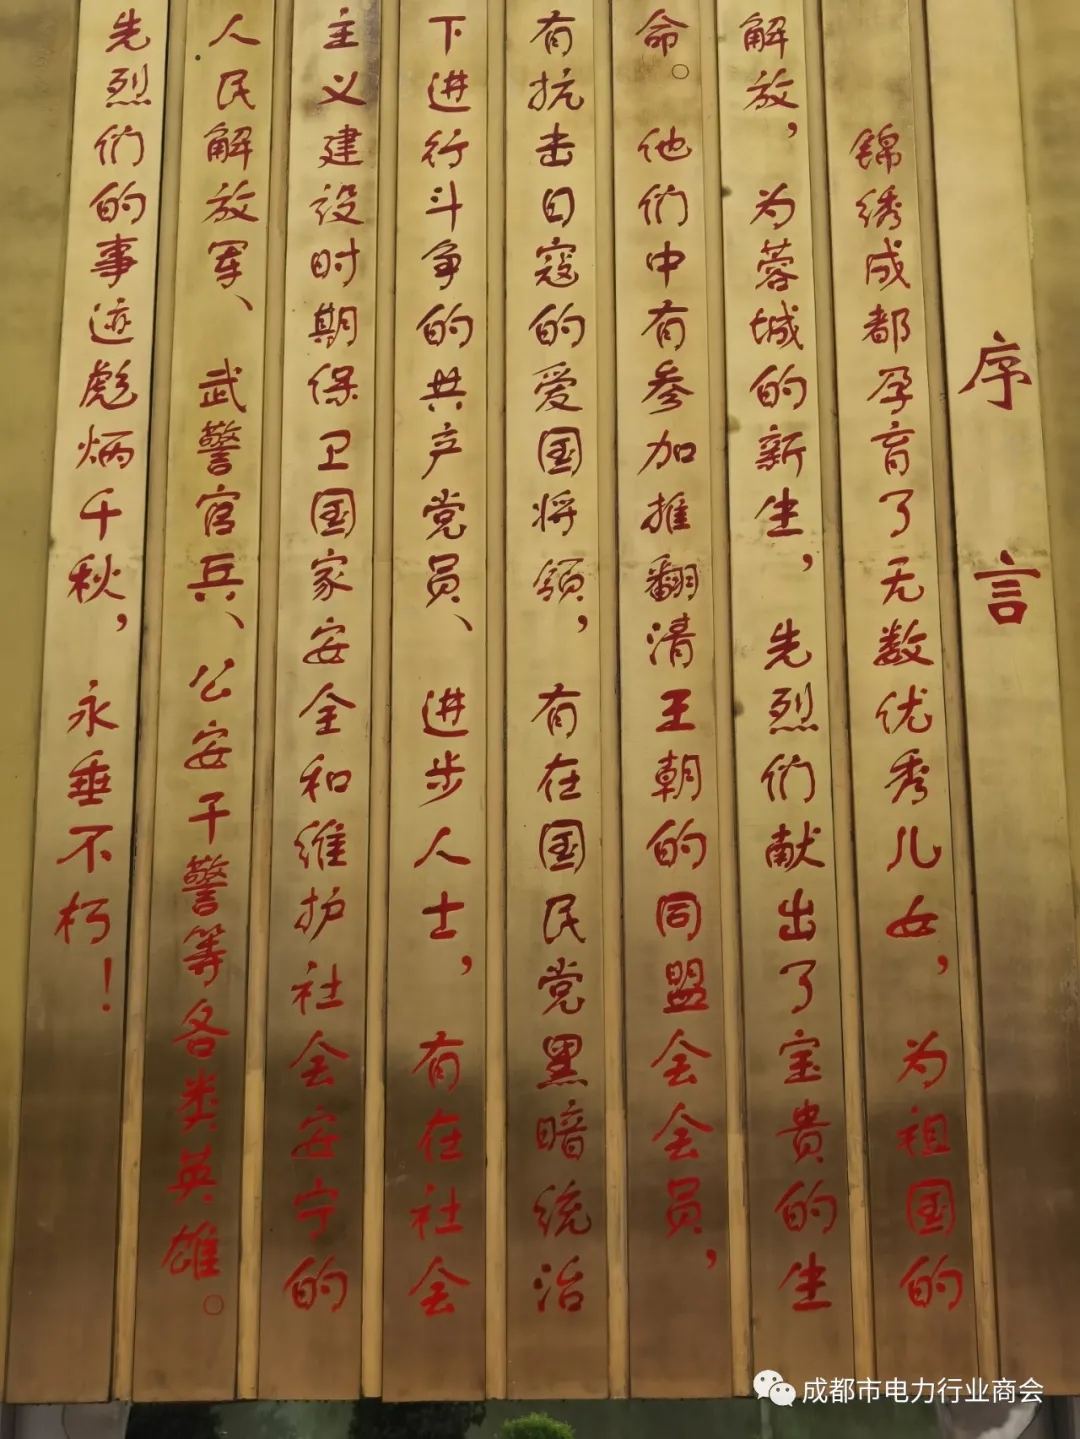 序言
锦绣成都孕育了无数优秀儿女，为祖国的
解放，为蓉城的新生，先烈们献出了宝贵的生
命。他们中有参加推翻清王朝的同盟会会员，
有抗击日寇的爱国将领，有在国民党黑暗统治
下进行斗争的共产党员、进步人士，有在社会
主义建设时期保卫国家安全和维护社会安宁的
人民解放军、武警官兵、公安干警等各类英雄。
先烈们的事迹彪炳千秋，永垂不朽！
成都市电力行业商会